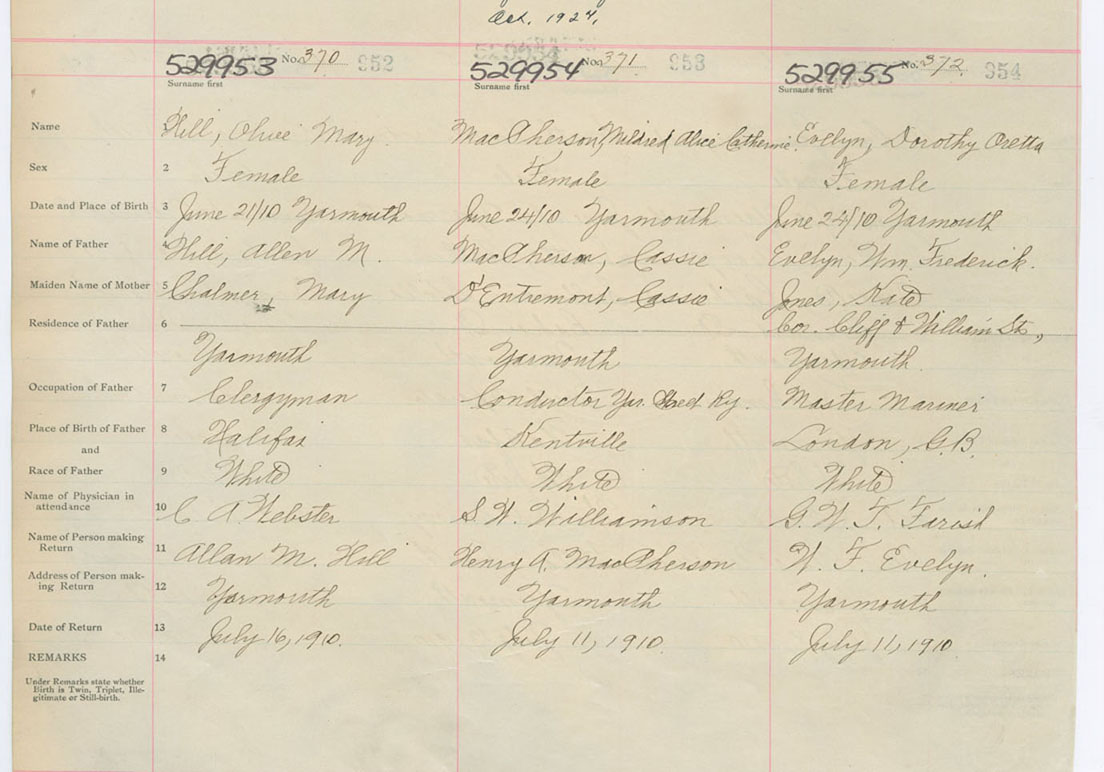 Oct. 1924.
529953 No. 370 952 529954 No. 371 953 529955 No. 372 954
Surname first Surname first Surname first
Name Hill, Olive Mary MacPherson, Mildred Alice Catherine Evelyn, Dorothy Oretta
Sex 2 Female Female Female
Date and Place of Birth 3 June 21/10 Yarmouth June 24/10 Yarmouth June 24/10 Yarmouth
Name of Father 4 Hill, Allen M. MacPherson, Cassie Evelyn, Wm. Frederick.
Maiden Name of Mother 5 Chalmer, Mary D'Entremont, Cassie Jones, Kate
Residence of Father 6 Cor. Cliff & William Sts,
Yarmouth Yarmouth Yarmouth.
Occupation of Father 7 Clergyman Conductor Yar. Street Ry. Master Mariner
Place of Birth of Father 8 Halifax Kentville London, G.B.
and
Race of Father 9 White White White
Name of Physician in
attendance 10 C A Webster S. W. Williamson G. W. T. Farish
Name of Person making
Return 11 Allan M. Hill Henry A. MacPherson W. F. Evelyn.
Address of Person mak-
ing Return 12 Yarmouth Yarmouth Yarmouth
Date of Return 13 July 16, 1910. July 11, 1910. July 11, 1910.
REMARKS 14
Under Remarks state whether
Birth is Twin, Triplet, Ille-
gitimate or Still-birth.